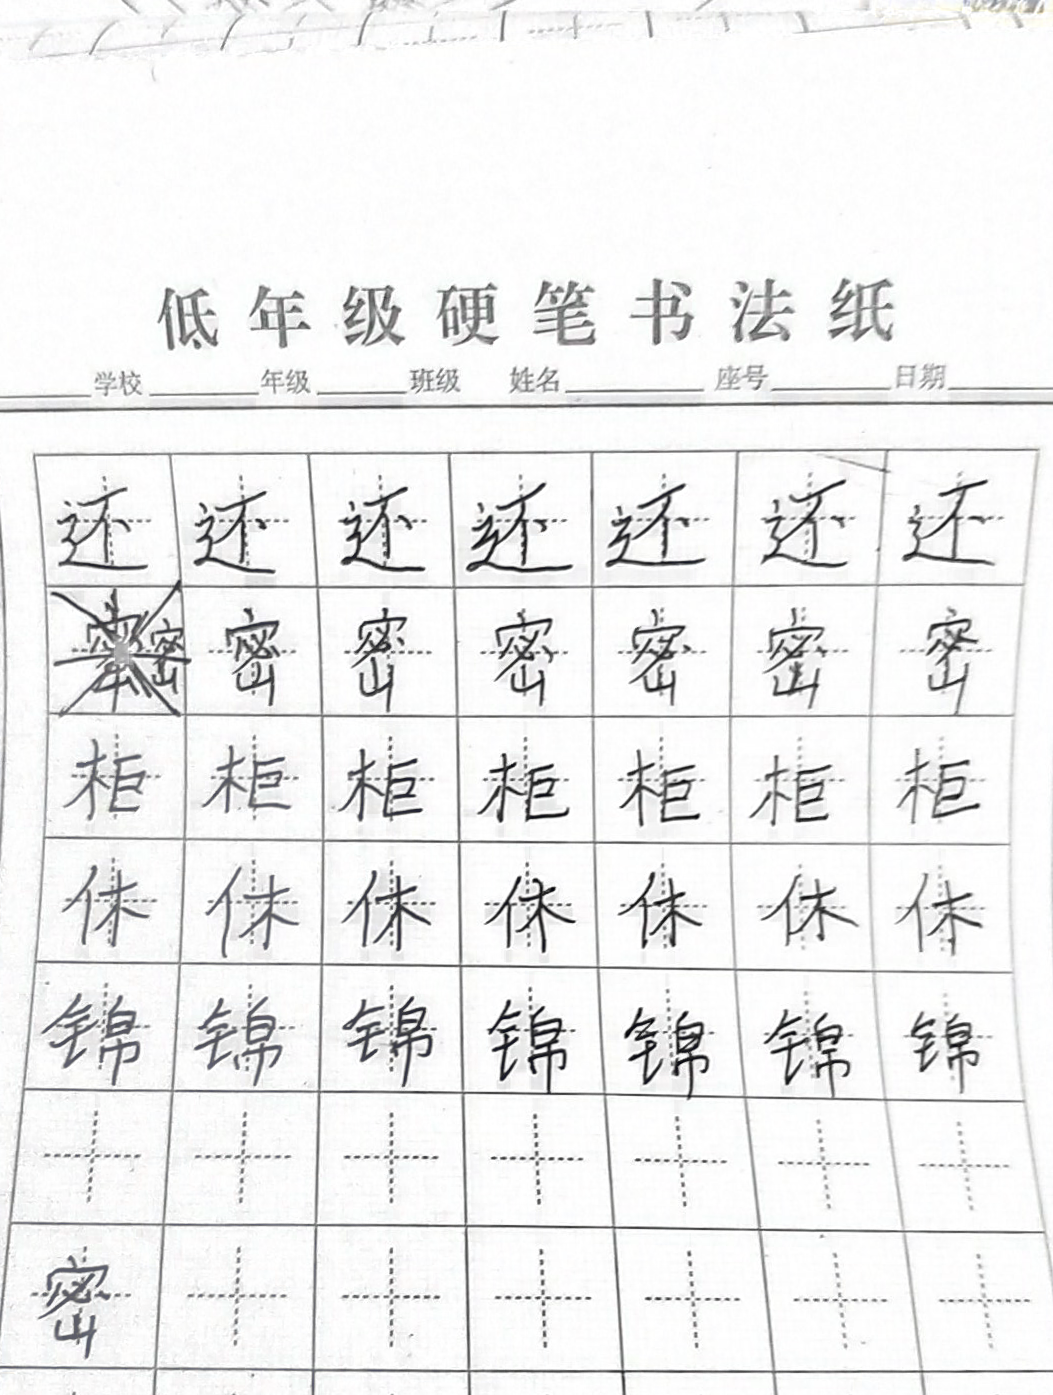 低年级硬笔书法纸
学校 年级 班级 姓名 座号 日期
还还还还还还还
密密密密密密密
柜柜柜柜柜柜柜
休休休休休休休
锦锦锦锦锦锦锦
密